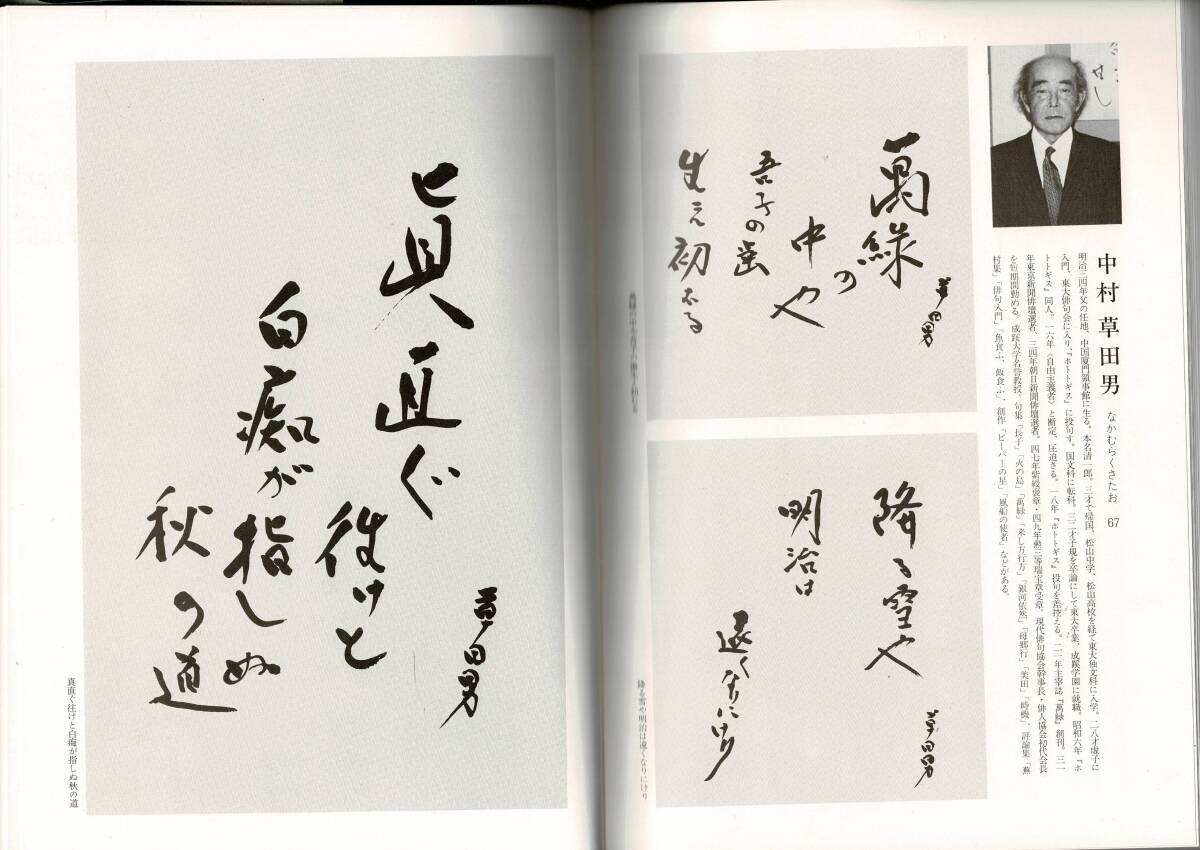 中村草田男 なかむらくさたお 67
明治三四年父の任地、中国厦門領事館に生る。本名清一郎。三才で帰国、松山中学、松山高校を経て東大独文科に入学。二八才虚子に
入門、東大俳句会に入り、『ホトトギス』に投句す。国文科に転科。三二才子規を卒論にして東大卒業、成蹊学園に就職。昭和六年『ホ
トトギス』同人。一六年〈自由主義者〉と断定、圧迫さる。一八年『ホトトギス』投句を差控える。二一年主宰誌『萬緑』創刊。三一
年東京新聞俳壇選者、三四年朝日新聞俳壇選者。四七年紫綬褒章・四九年勲三等瑞宝章受章。現代俳句協会幹事長・俳人協会初代会長
を短期間勤める。成蹊大学名誉教授。句集「長子」「火の島」「萬緑」「来し方行方」「銀河依然」「母郷行」「美田」「時機」、評論集「蕪
村集」「俳句入門」「魚食ふ、飯食ふ」、創作「ビーバーの星」「風船の使者」などがある。
萬緑
の
中や
吾子の歯
生え初むる
草田男
降る雪や
明治は
遠くなりにけり
草田男
降る雪や明治は遠くなりにけり
眞直ぐ
往けと
白痴が指しぬ
秋の道
草田男
真直ぐ往けと白痴が指しぬ秋の道